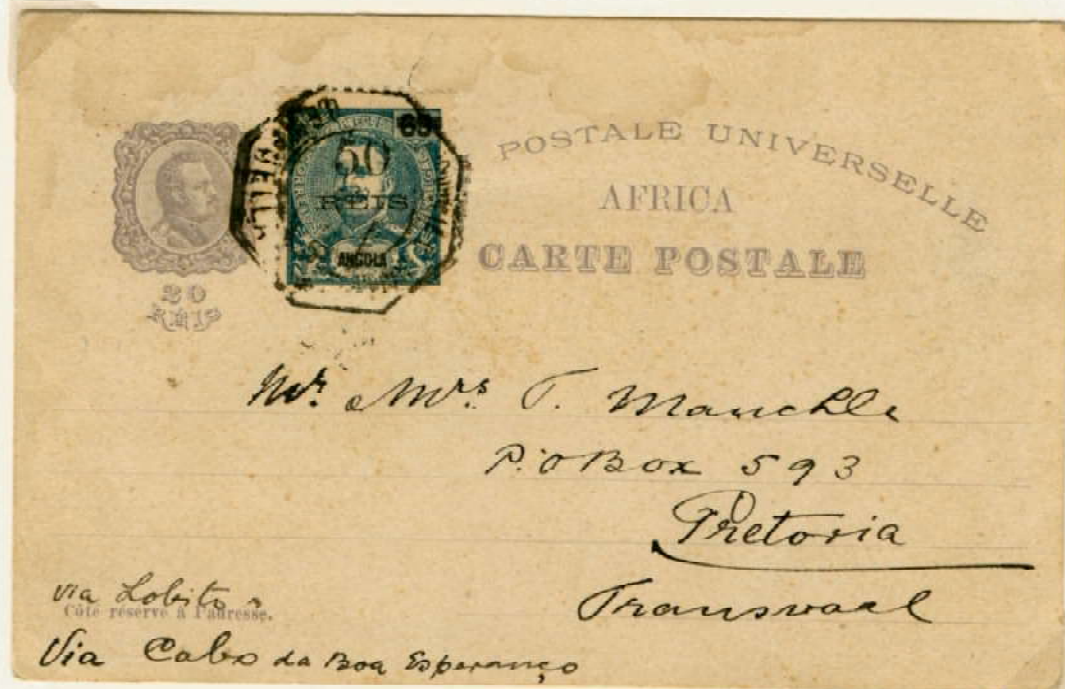 POSTALE UNIVERSELLE
AFRICA
CARTE POSTALE
20
REIS
65
50
REIS
ANGOLA
Mr. Mrs. T.
P.O Box 593
Pretoria
Transvaal
via Lobito
Côté réservé à l'adresse.
Via Cabo da Boa Esperança